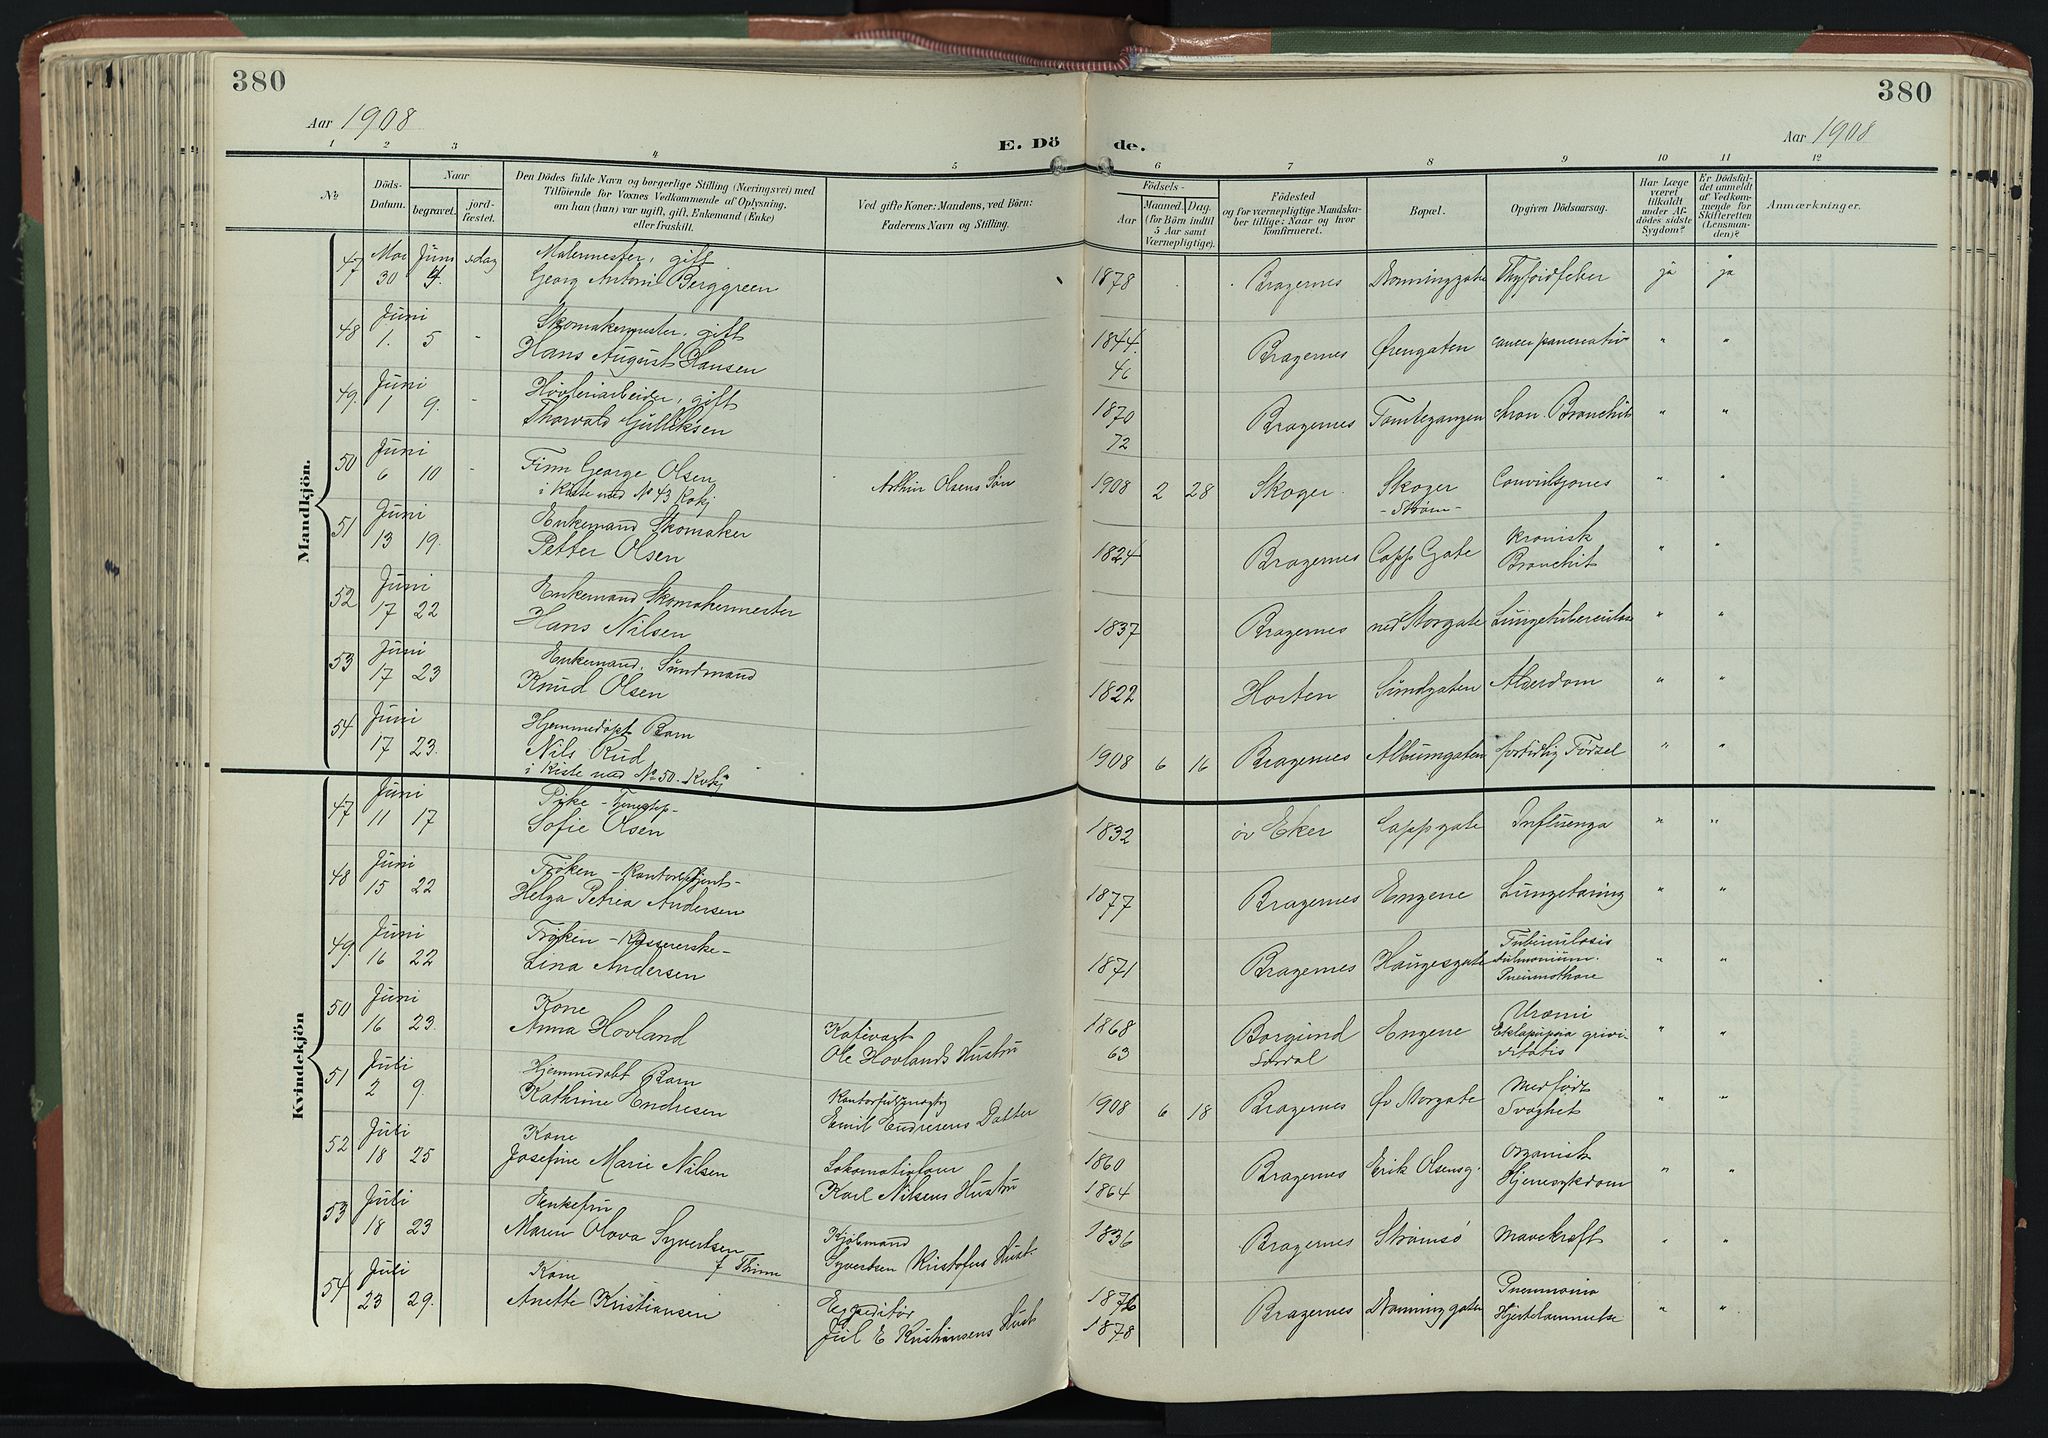 380
380
Aar 1908
Aar 1908
E. Dö de.
1 2 3 4 5 6 7 8 9 10 11 12
No
Döds-Datum.
Naar
begravet.
jord-fæstet.
Den Dödes fulde Navn og borgerlige Stilling (Næringsvei) med
Tilföiende for Voxnes Vedkommende af Oplysning,
om han (hun) var ugift, gift, Enkemand (Enke)
eller fraskilt.
Ved gifte Koner: Mandens, ved Börn:
Faderens Navn og Stilling.
Födsels-
Aar
Maaned. Dag.
(for Börn indtil
5 Aar samt
Værnepligtige).
Födested
og for værnepligtige Mandska-
ber tillige: Naar og hvor
konfirmeret.
Bopæl.
Opgiven Dödsaarsag.
Har Læge
været
tilkaldt
under Af-
dödes sidste
Sygdom?
Er Dödsfal-
det anmeldt
af Vedkom-
mende for
Skifteretten
(Lensman-
den)?
Anmærkninger.
Mandkjön.
47 Mai 30 Juni 4. s. dag Malermester, gift
Georg Antoni Berggreen 1878 Bragernes Dronninggate Thyfoidfeber ja ja
48 Juni 1. 5 - Skomakermester, gift
Hans August Hansen 1844. 46 Bragernes Ørengaten cancer pancreatis " "
49. Juni 1 9. - Høvleriarbeider, gift
Thorvald Gulliksen 1870 72 Bragernes Tomtegangen kron. Bronchit " "
50 Juni 6 10 - Finn George Olsen
i Kiste med No 43 Kokj Arthur Olsens Søn 1908 2 28 Skoger Skoger - Strøm - Convulsjones " "
51 Juni 13 19. Enkemand Skomaker
Petter Olsen 1824 Bragernes Capp Gate kronisk Bronchit " "
52 Juni 17 22 Enkemand Skomakermester
Hans Nilsen 1837 Bragernes ned Storgate Lungetuberculose " "
53 Juni 17 23 Enkemand. Sundmand
Knud Olsen 1822 Horten Sundgaten Alderdom " "
54 Juni 17 23. Hjemmedøpt Barn
Nils Rud
i Kiste med No 50. Kokj 1908 6 16 Bragernes Albumgaten fortidlig Fødsel " "
Kvindekjön
47 Juni 11 17 Pike -
Sofie Olsen 1832 øv Eker Cappgate Influenza " "
48 Juni 15 22 Frøken - Kontorbetjent -
Helga Petrea Andersen 1877 Bragernes Engene Lungetæring " "
49. Juni 16 22 Frøken - Kassererske -
Lina Andersen 1871 Bragernes Haugesgate Tuberculosis pulmonium. Pneumothorx " "
50 Juni 16 23. Kone
Anna Hovland
Ole Hovlands Hustru 1868 63 Borgund Engene Uræmi " "
51 Juli 2 9. Hjemmedøbt Barn
Kathrine Endresen Kontorfuldmægtig
Emil Endresens Datter 1908 6 18 Bragernes Øv Storgate Medfødt Svaghet " "
52 Juli 18 25 Kone
Josefine Marie Nilsen
Karl Nilsens Hustru 1860 1864 Bragernes Erik Olsensg. Organisk Hjertesykdom " "
53 Juli 18 23 Enkefru
Maren Olova Syvertsen
f Thime Kjøbmand
Syvertsen Kristofus Hust 1836 Bragernes Strømsö Mavekræft " "
54 Juli 23 29. Kone
Anette Kristiansen Expeditør
Juel E Kristiansens Hust 1876 1878 Bragernes Dronninggaten Pneumonia Hjertelammelse " "